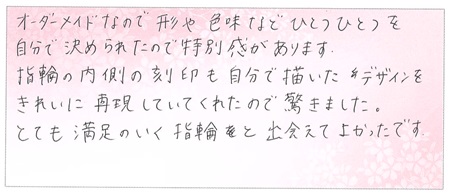 オーダーメイドなので形や色味などひとつひとつを
自分で決められたので特別感があります.
指輪の内側の刻印も自分で描いたデザインを
きれいに再現していてくれたので驚きました。
とても満足のいく指輪と出会えてよかったです.